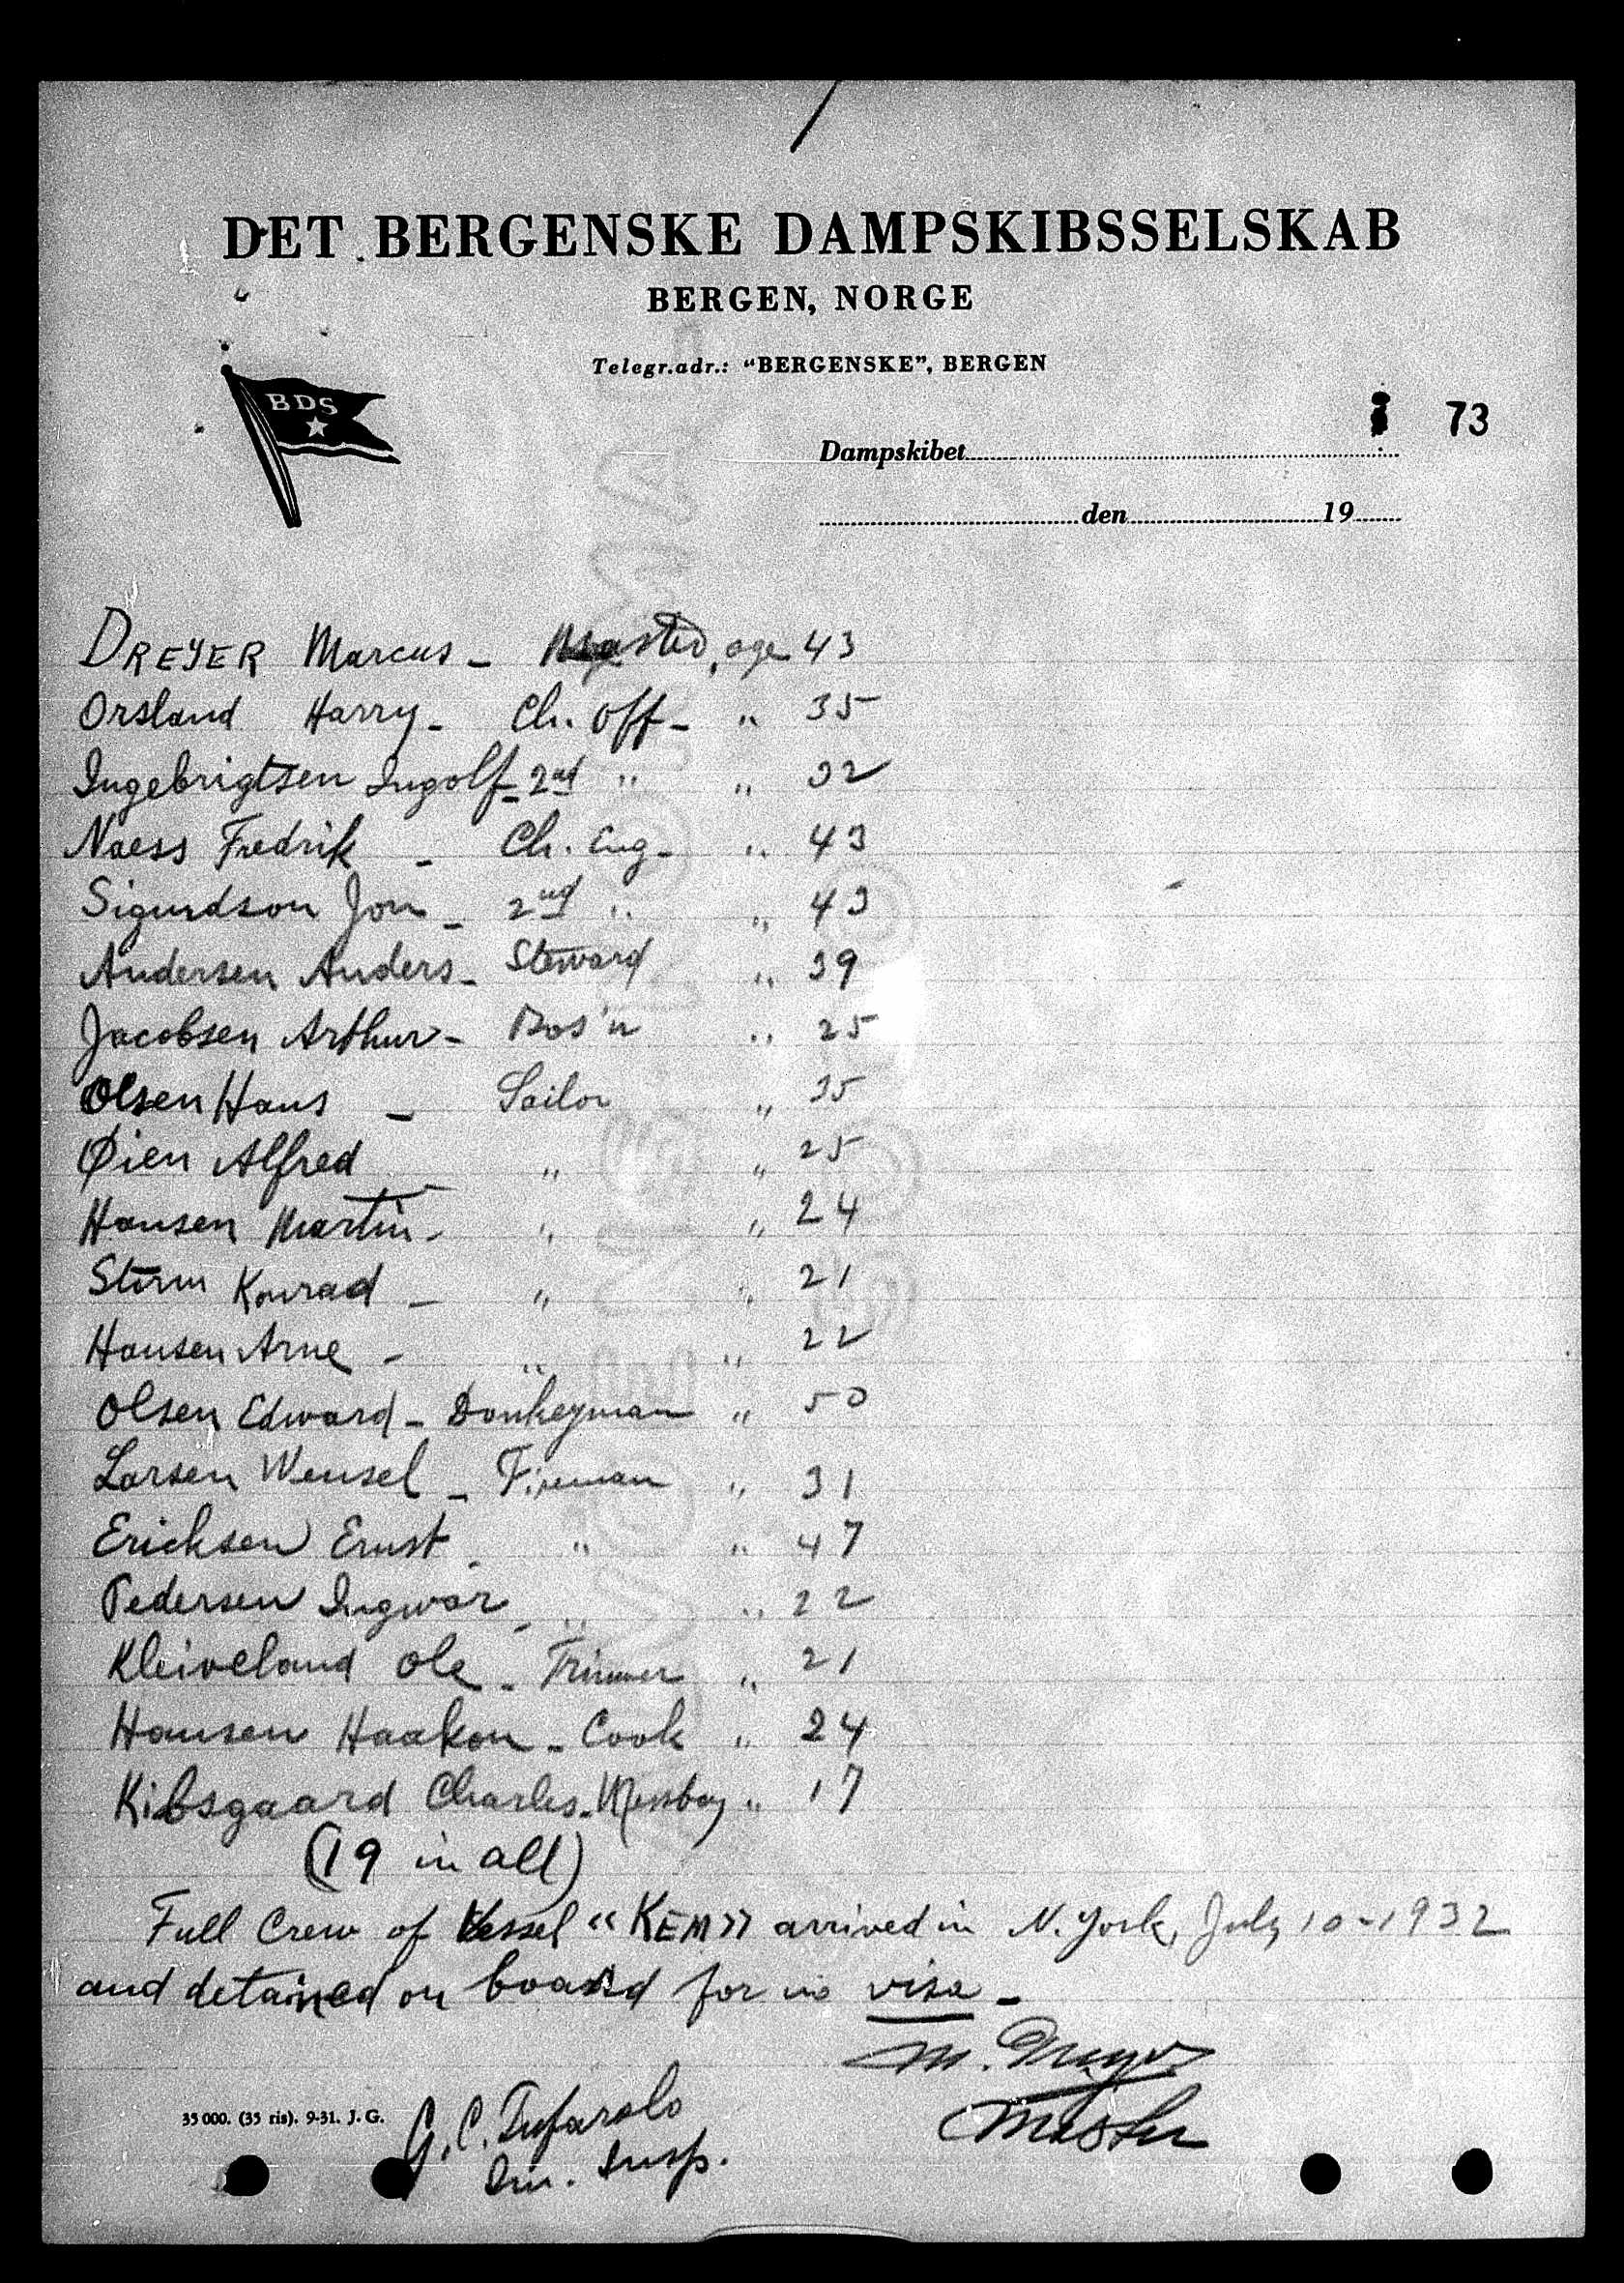 DET BERGENSKE DAMPSKIBSSELSKAB
BERGEN, NORGE
Telegr.adr.: “BERGENSKE”, BERGEN
BDS
73
Dampskibet
den 19
DREYER Marcus - Master, age 43
Orsland Harry - Ch. Off - " 35
Ingebrigtsen Ingolf - 2nd " " 32
Naess Fredrik - Ch. Eng - " 43
Sigurdson Jon - 2nd " " 43
Andersen Anders - Steward " 39
Jacobsen Arthur - Bos'n " 25
Olsen Hans - Sailor " 35
Øien Alfred - " " 25
Hansen Martin - " " 24
Storm Konrad - " " 21
Hansen Arne - " " 22
Olsen Edward - Donkeyman " 50
Larsen Wensel - Fireman " 31
Ericksen Ernst - " " 47
Pedersen Ingwar - " " 22
Kleiveland Ole - Trimmer " 21
Hansen Haakon - Cook " 24
Kibsgaard Charles - Messboy " 17
(19 in all)
Full Crew of Vessel «KEM» arrived in N. York, July 10-1932
and detained on board for no visa -
M. Dreyer
Master
35 000. (35 ris). 9-31. J. G.
G. C. Tufarolo
Im. Insp.